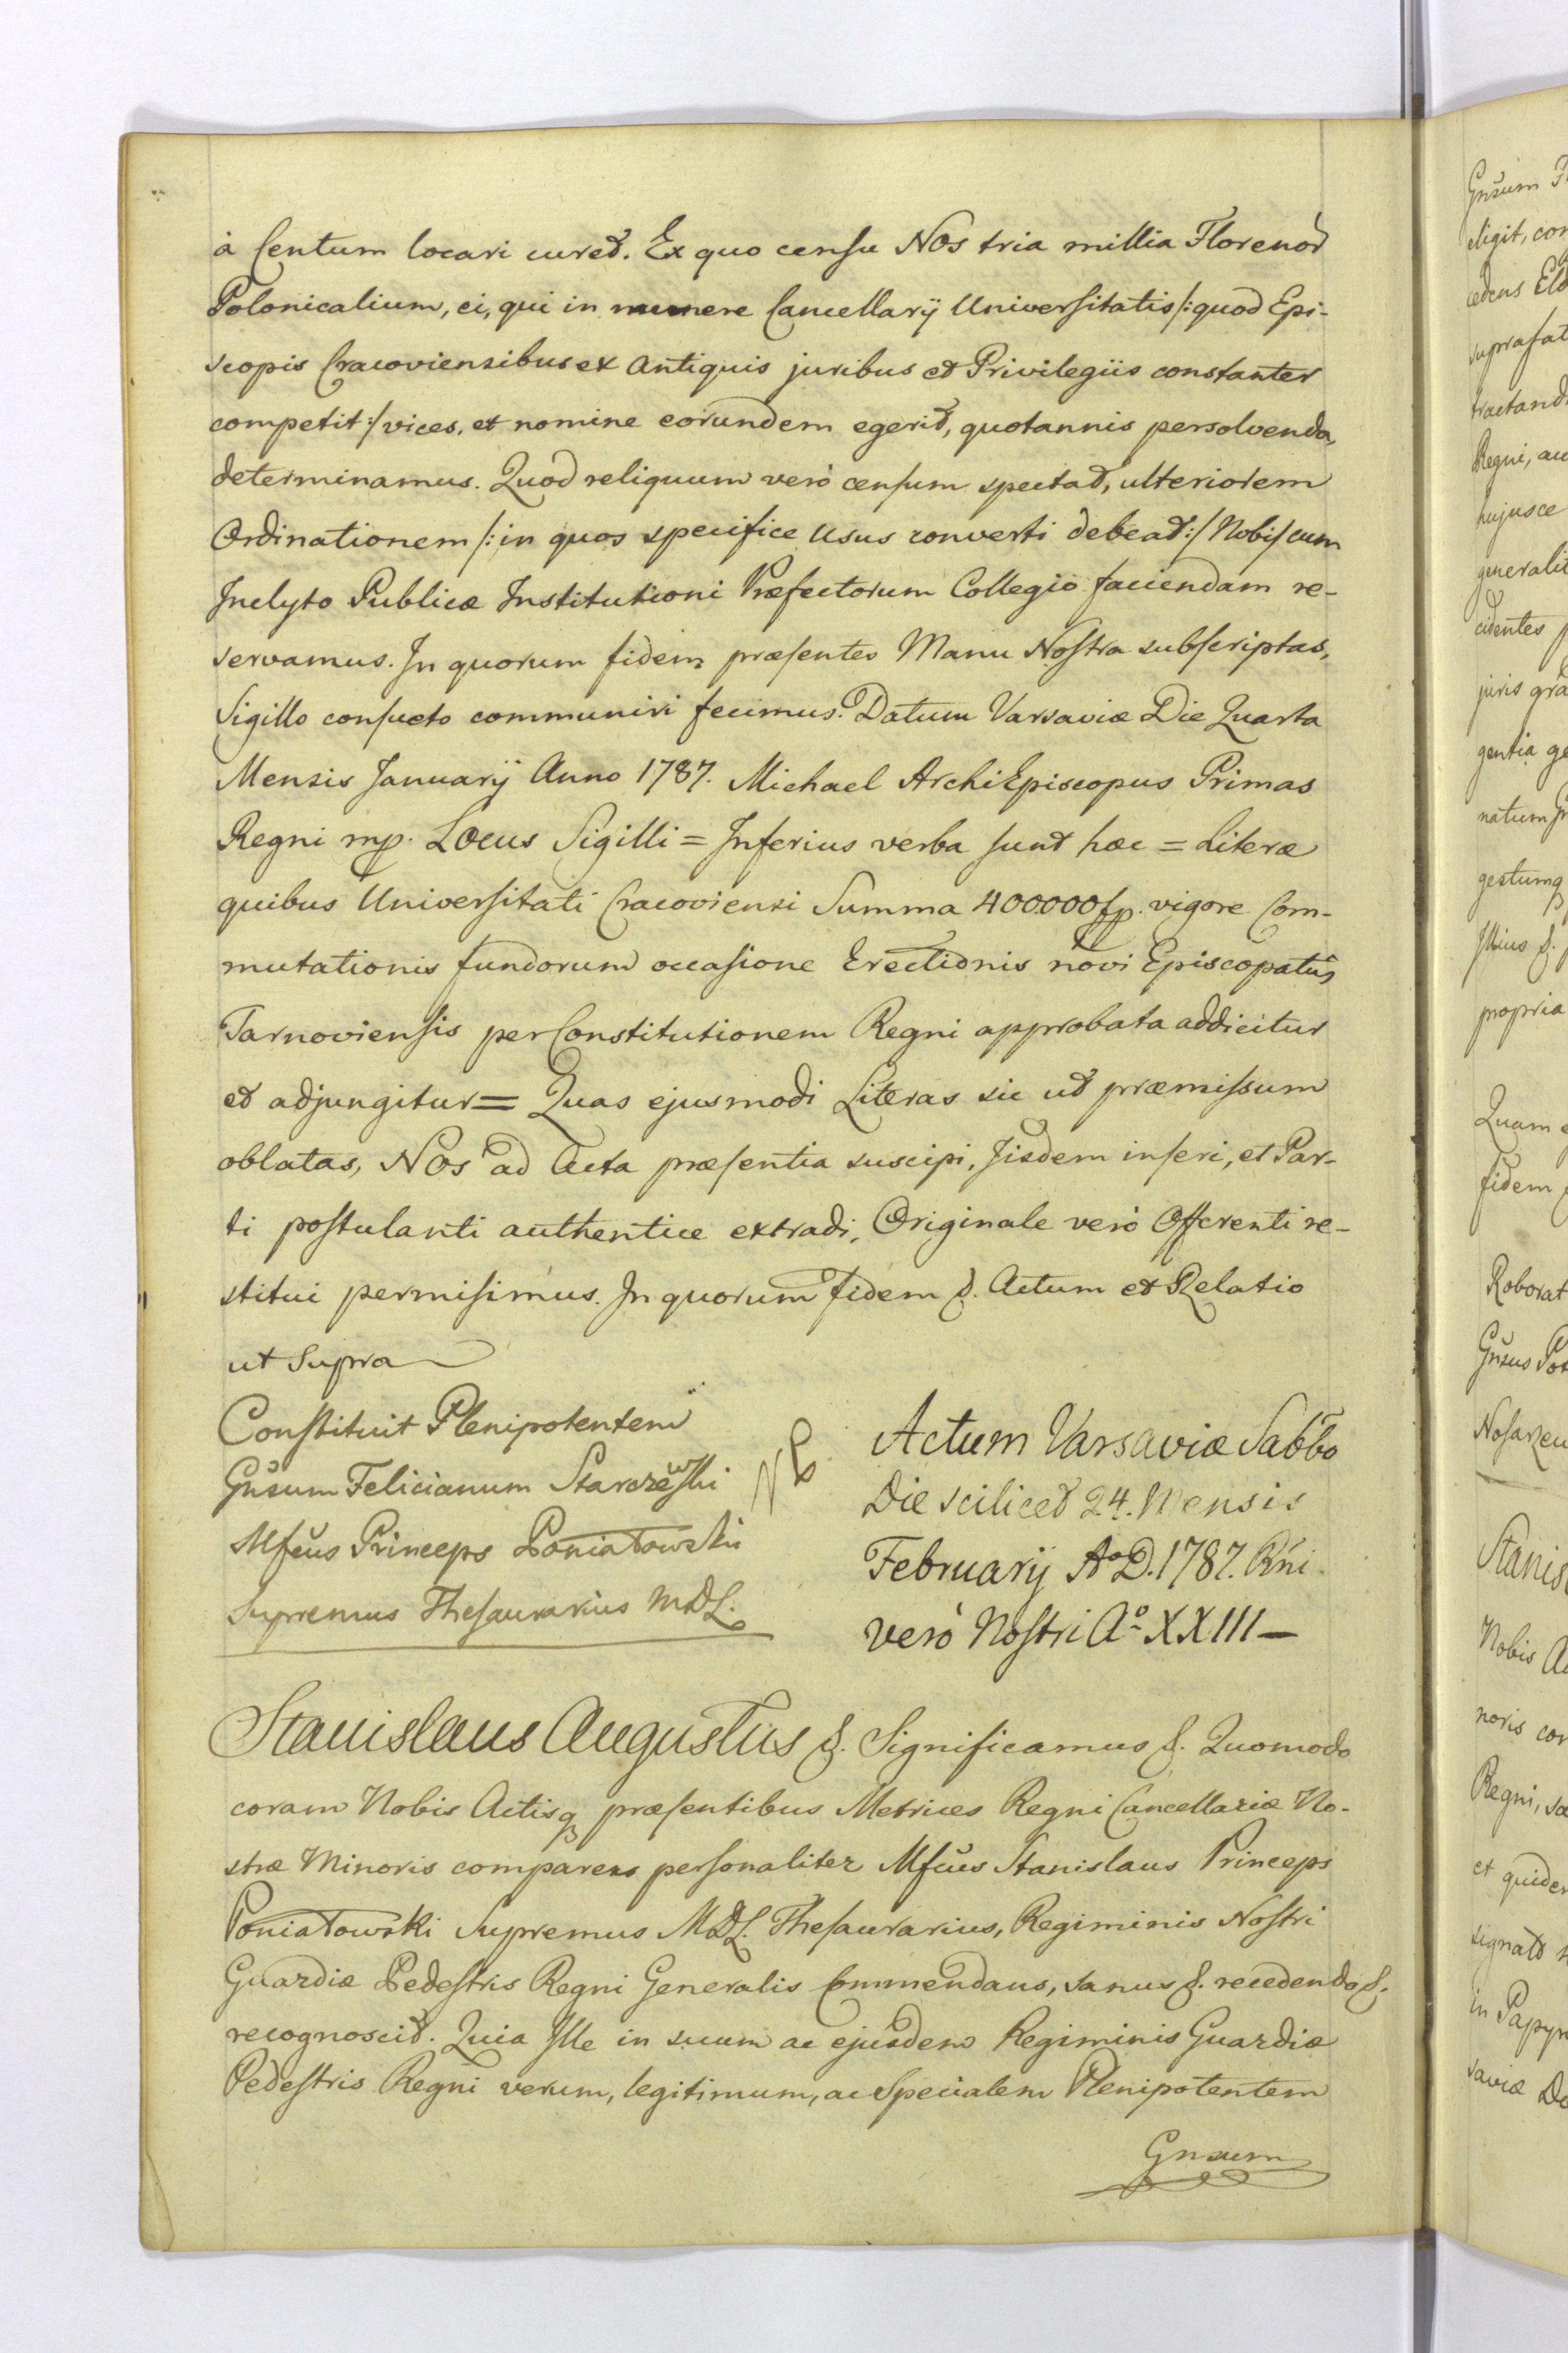 à Centum locari curet. Ex quo censu Nos tria millia Florenor
Polonicalium, ei, qui in munere Cancellarij Universitatis /: quod Epi-
scopis Cracoviensibus ex Antiquis juribus et Privilegiis constanter
competit :/ vices, et nomine eorundem egerit, quotannis persolvenda,
determinamus. Quod reliquum verò censum spectat, ulteriorem
Ordinationem /: in quos specifice usus converti debeat :/ Nobiscum
Inclyto Publicæ Institutioni Præfectorum Collegio faciendam re-
servamus. In quorum fidem præsentes Manu Nostra subscriptas,
Sigillo consueto communiri fecimus. Datum Varsaviæ Die Quarta
Mensis Januarij Anno 1787. Michael ArchiEpiscopus Primas
Regni mp. Locus Sigilli = Inferius verba sunt hæc = Literæ
quibus Universitati Cracoviensi Summa 400000 fp. vigore Com-
mutationis fundorum occasione Erectionis novi Episcopatûs
Tarnoviensis per Constitutionem Regni approbata addicitur
et adjungitur = Quas ejusmodi Literas sic ut præmissum
oblatas, Nos ad Acta præsentia suscipi, Iisdem inseri, et Par-
ti postulanti authentice extradi, Originale verò Offerenti re-
stitui permisimus. In quorum fidem &. Actum et Relatio
ut supra
Constituit Plenipotentem
Gnsum Felicianum Starczewski
Mfcus Princeps Poniatowski
Supremus Thesaurarius MDL.
NB
Actum Varsaviæ Sabbo
Die scilicet 24. Mensis
Februarij Aº D. 1787. Rni
verò Nostri Aº XXIII —
Stanislaus Augustus &. Significamus &. Quomodo
coram Nobis Actisq præsentibus Metrices Regni Cancellariæ No-
stræ Minoris comparens personaliter Mfcus Stanislaus Princeps
Poniatowski Supremus MDL. Thesaurarius, Regiminis Nostri
Guardiæ Pedestris Regni Generalis Commendans, sanus &. recedendo &.
recognoscit. Quia Ille in suum ac ejusdem Regiminis Guardiæ
Pedestris Regni verum, legitimum, ac Specialem Plenipotentem
Gnsum